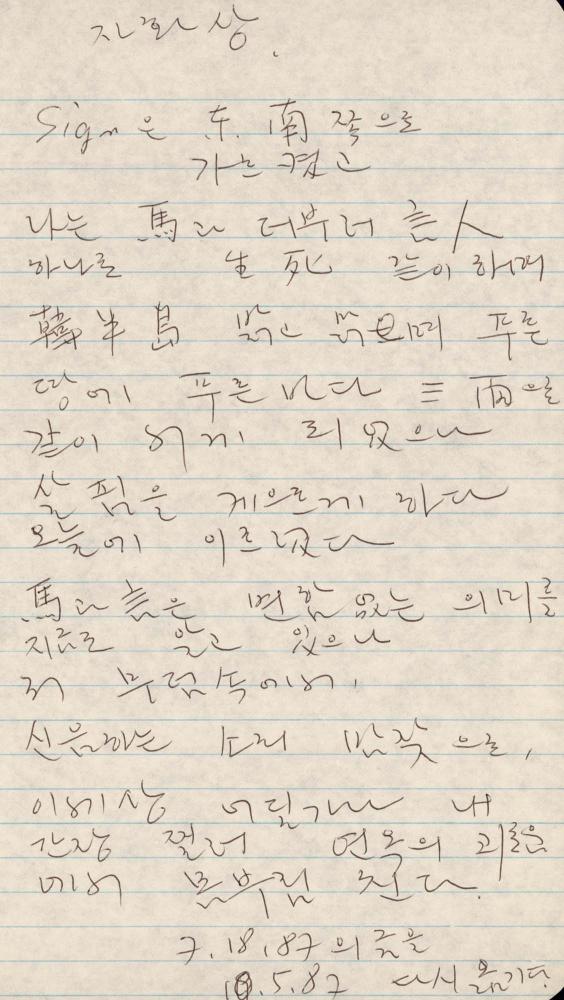 자화상.
Sign은 东.南쪽으로
가르켰고
나는 馬과 더부러 言人
하나로 生死 같이 하며
韓半島 맑고 맑으며 푸른
땅에 푸른 바다 三面으로
같이 하게 되였으나
살핌을 게으르게 하다
오늘에 이르렀다
馬과 言은 변함없는 의미를
지금도 알고 있으나
저 무덤속에서,
신음하는 소리 밤낮으로,
이세상 어딜가나 내
간장 찔러 연옥의 괴로움
에서 몸부림 친다.
7.18.87의 글을
10.5.87 다시 옮기면.